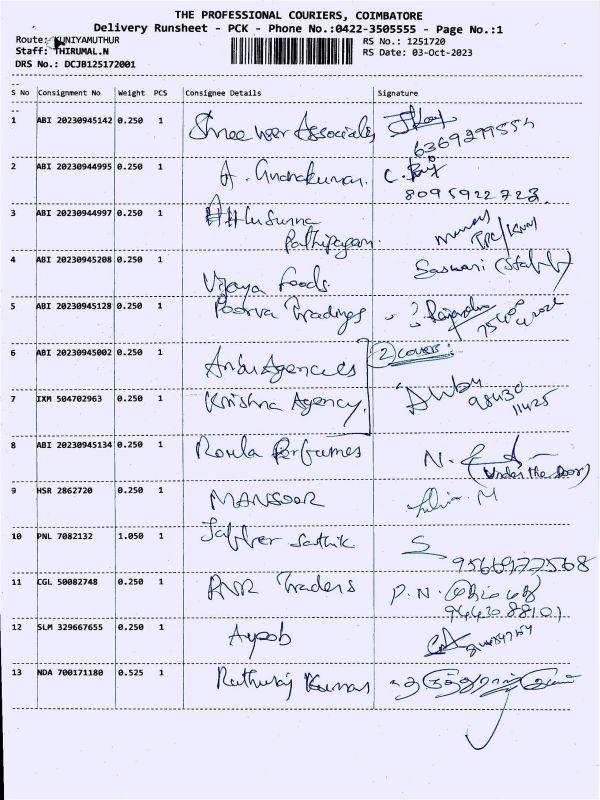 THE PROFESSIONAL COURIERS, COIMBATORE
Delivery Runsheet - PCK - Phone No.:0422-3505555 - Page No.:1
Route: KUNIYAMUTHUR
RS No.: 1251720
Staff: THIRUMAL.N
RS Date: 03-Oct-2023
DRS No.: DCJB125172001
S No Consignment No Weight PCS Consignee Details Signature
1 ABI 20230945142 0.250 1 Shree Veer Associates
6369299554
2 ABI 20230944995 0.250 1 A. Gnanakumar. C.
8095922723.
3 ABI 20230944997 0.250 1
Pathippagam.
4 ABI 20230945208 0.250 1 Vijaya Foods. (Staff)
5 ABI 20230945128 0.250 1 Poorva Tradings
6 ABI 20230945002 0.250 1 Anbu Agencies (2) covers.
7 IXM 504702963 0.250 1 Krishna Agency. 98430
11425
8 ABI 20230945134 0.250 1 Roula Perfumes N.
(Under the Door)
9 HSR 2862720 0.250 1 MANSOOR
10 PNL 7082132 1.050 1 Jaffer Sathik
9566977568
11 CGL 50082748 0.250 1 Traders P.N.
9442088101
12 SLM 329667655 0.250 1 Ayoob
13 NDA 700171180 0.525 1 Ruthuraj Kumar